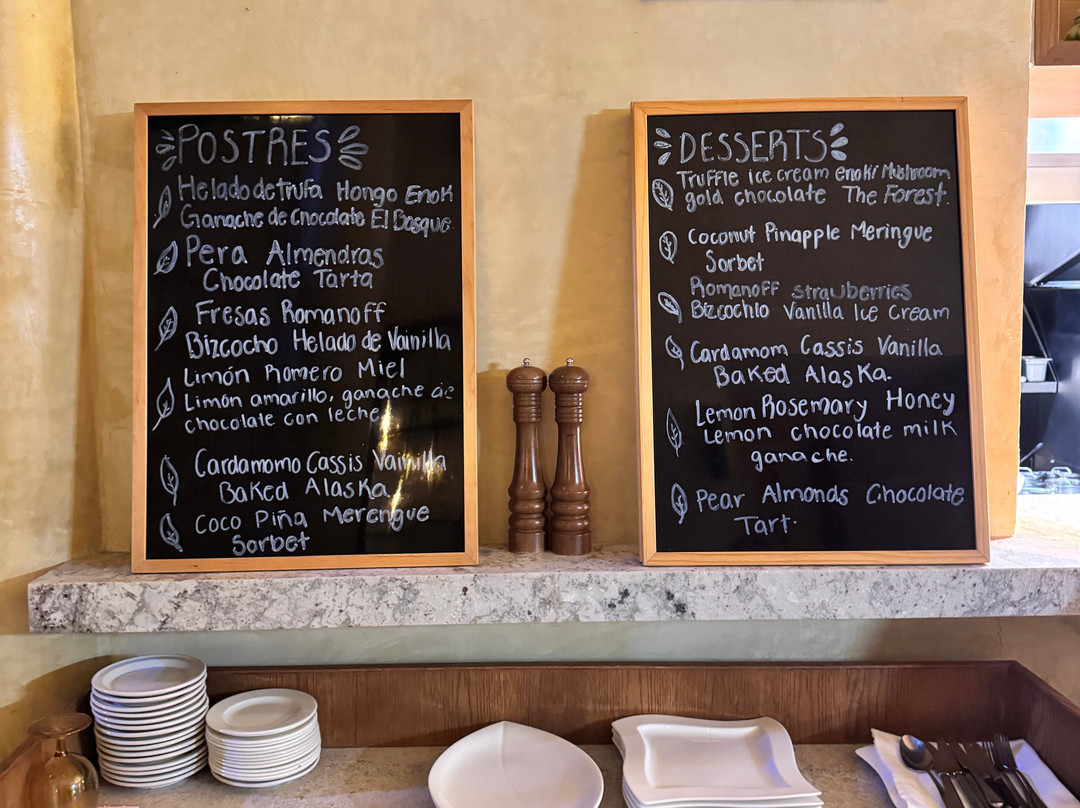 POSTRES
Helado de trufa Hongo Enoki
Ganache de Chocolate El Bosque.
Pera Almendras
Chocolate Tarta
Fresas Romanoff
Bizcocho Helado de Vainilla
Limón Romero Miel
Limón amarillo, ganache de
chocolate con leche
Cardamomo Cassis Vainilla
Baked Alaska
Coco Piña Merengue
Sorbet
DESSERTS
Truffle ice cream enoki Mushroom
gold chocolate The Forest.
Coconut Pinapple Meringue
Sorbet
Romanoff strawberries
Bizcochio Vanilla Ice Cream
Cardamom Cassis Vanilla
Baked Alaska.
Lemon Rosemary Honey
Lemon chocolate milk
ganache.
Pear Almonds Chocolate
Tart.